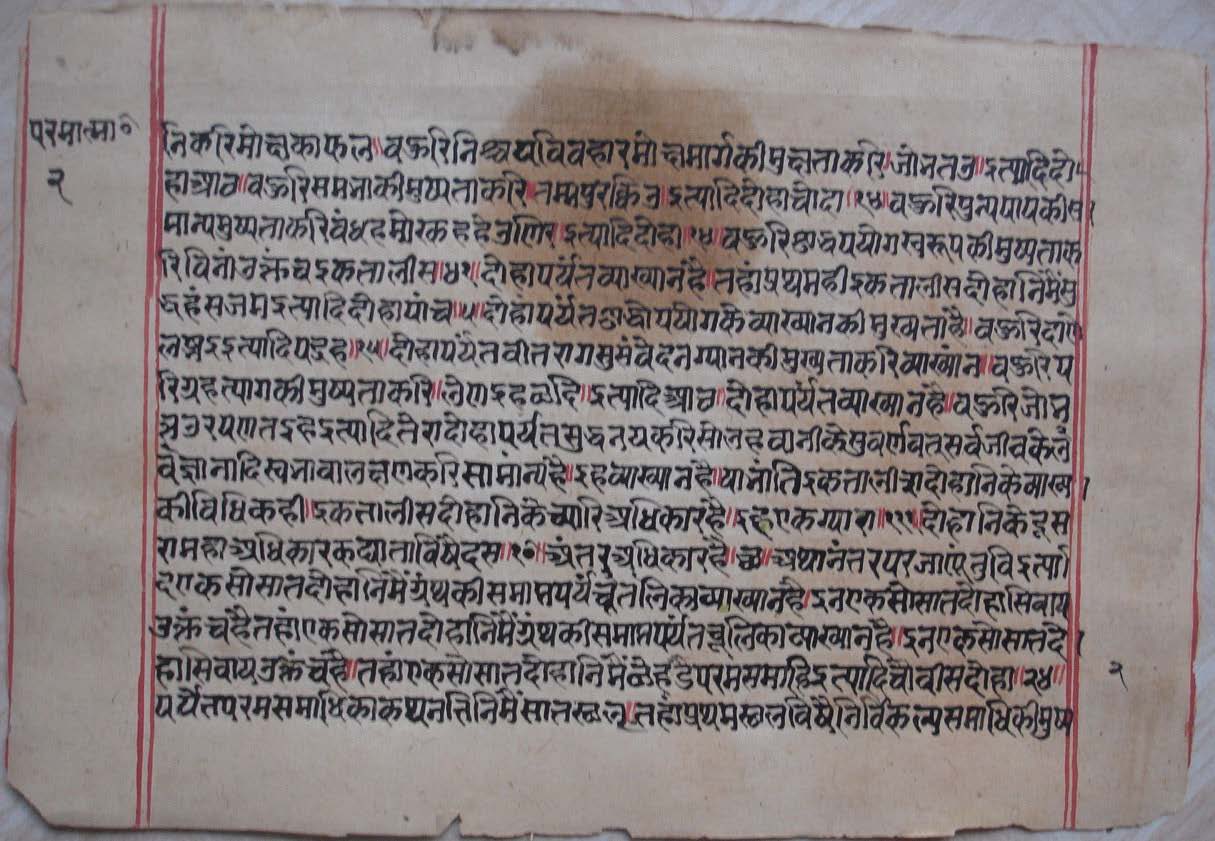 परमात्मा०
२
निकरिमोक्षकाफल॥वऊरिनिश्चयविवहारमोक्षमार्गकीमुक्षताकरि॥जोनतउ॥इत्यादिदो
हाआठ॥वऊरिसमताकीमुष्यताकरि॥कम्मपुरक्किउ॥इत्यादिदोहाचौदा॥१४॥वऊरिपुन्यपापकीस
मान्यमुष्यताकरिवंधहमोरकह इत्यादिदोहा॥१४॥वऊरिशुद्धपयोगस्वरूपकीमुष्यताक
रिविनाउक्तंचइकतालीस॥४१॥दोहापर्यंतव्याख्यानहै॥तहांप्रथमहीइकतालीसदोहानिमैंसु
द्धहंसजमइत्यादिदोहापांच॥५॥दोहापर्यंतशुद्धोपयोगकेव्याख्यानकीमुख्यताहै॥वऊरिदाणे
लभ्भइइत्यादिपंद्रह॥१५॥दोहापर्यंतवीतरागसुसंवेदनग्यानकीमुख्यताकरिव्याख्यांन॥वऊरिप
रिग्रहत्यागकीमुष्यताकरि॥लेणहइछदि॥इत्यादिआठ॥दोहापर्यंतव्याख्यानहै॥वऊरिजोभ
त्तउरयणतइहइत्यादितेरादोहापर्यंतसुद्धनयकरिसोलहवानीकेसुवर्णवतसर्वजीवकेव
लज्ञानादिस्वभावलक्षणकरिसामांन्यहै॥इहव्याख्यानहै॥याभांतिइकतालीसदोहानिकेव्याख्यान
कीविधिकही॥इकतालीसदोहानिकेच्यारिअधिकारहै॥इहएकग्यारा॥११९॥दोहानिकेदूस
रामहाअधिकारकह्यातांविषैदस॥१०॥अंतरअधिकारहै॥छ॥अथानंतरपरजाणंतुविइत्या
दिएकसोसातदोहानिमैंग्रंथकीसमाप्तपर्यंतचूलिकाव्याख्यानहै॥इनएकसोसातदोहासिवाय
उक्तंचहैतहांएकसोसातदोहानिमैंग्रंथकीसमाप्तपर्यंतचूलिकाव्याख्यानहै॥इनएकसोसातदो
हासिवायउक्तंचहै॥तहांएकसोसातदोहानिमैं परमसमाहिइत्यादिचौवीसदोहा॥२४॥
पर्यंतपरमसमाधिकाकथनतिनिमैंसातस्छल॥तहांप्रथमस्छलविषैनिर्विकल्पसमाधिकीमुष्य
२